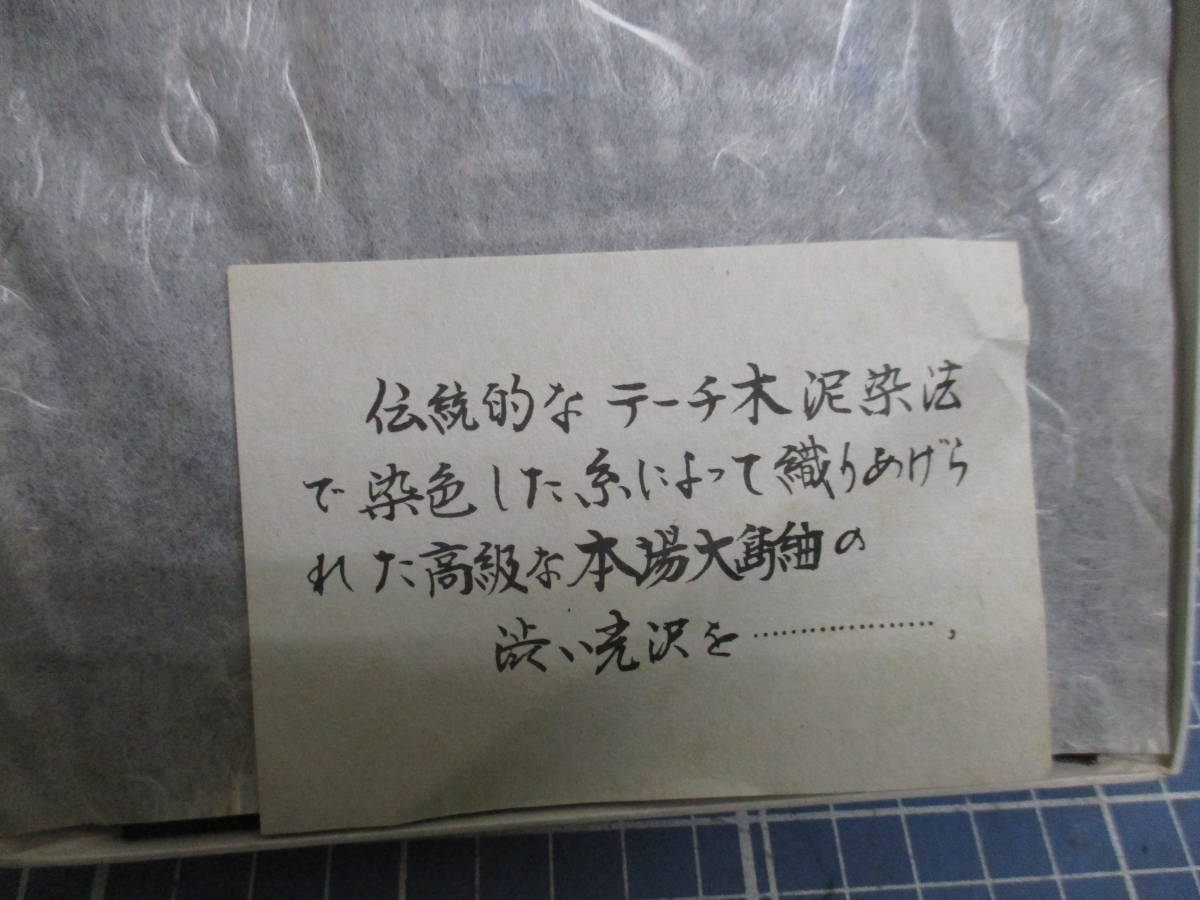 伝統的なテーチ木泥染法
で染色した糸によって織りあげら
れた高級な本場大島紬の
渋い光沢を…………………,